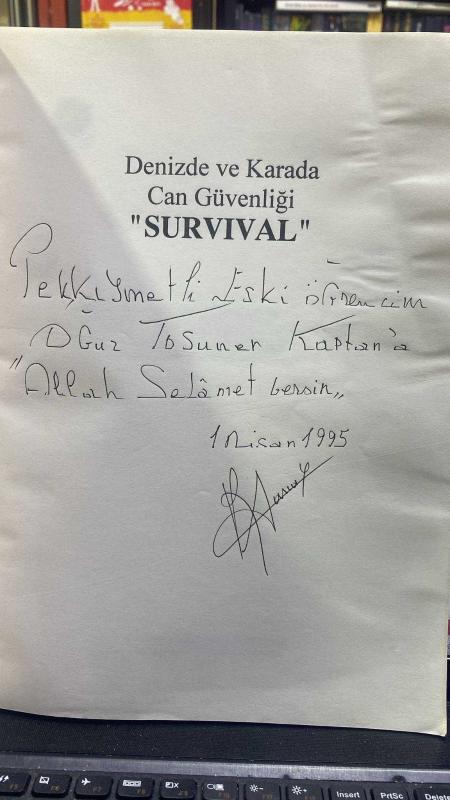 Denizde ve Karada
Can Güvenliği
"SURVIVAL"
Pek Kıymetli Eski öğrencim
Oğuz Tosuner Kaptan'a
"Allah Selâmet versin„
1 Nisan 1995
Insert
PrtSc
Delete